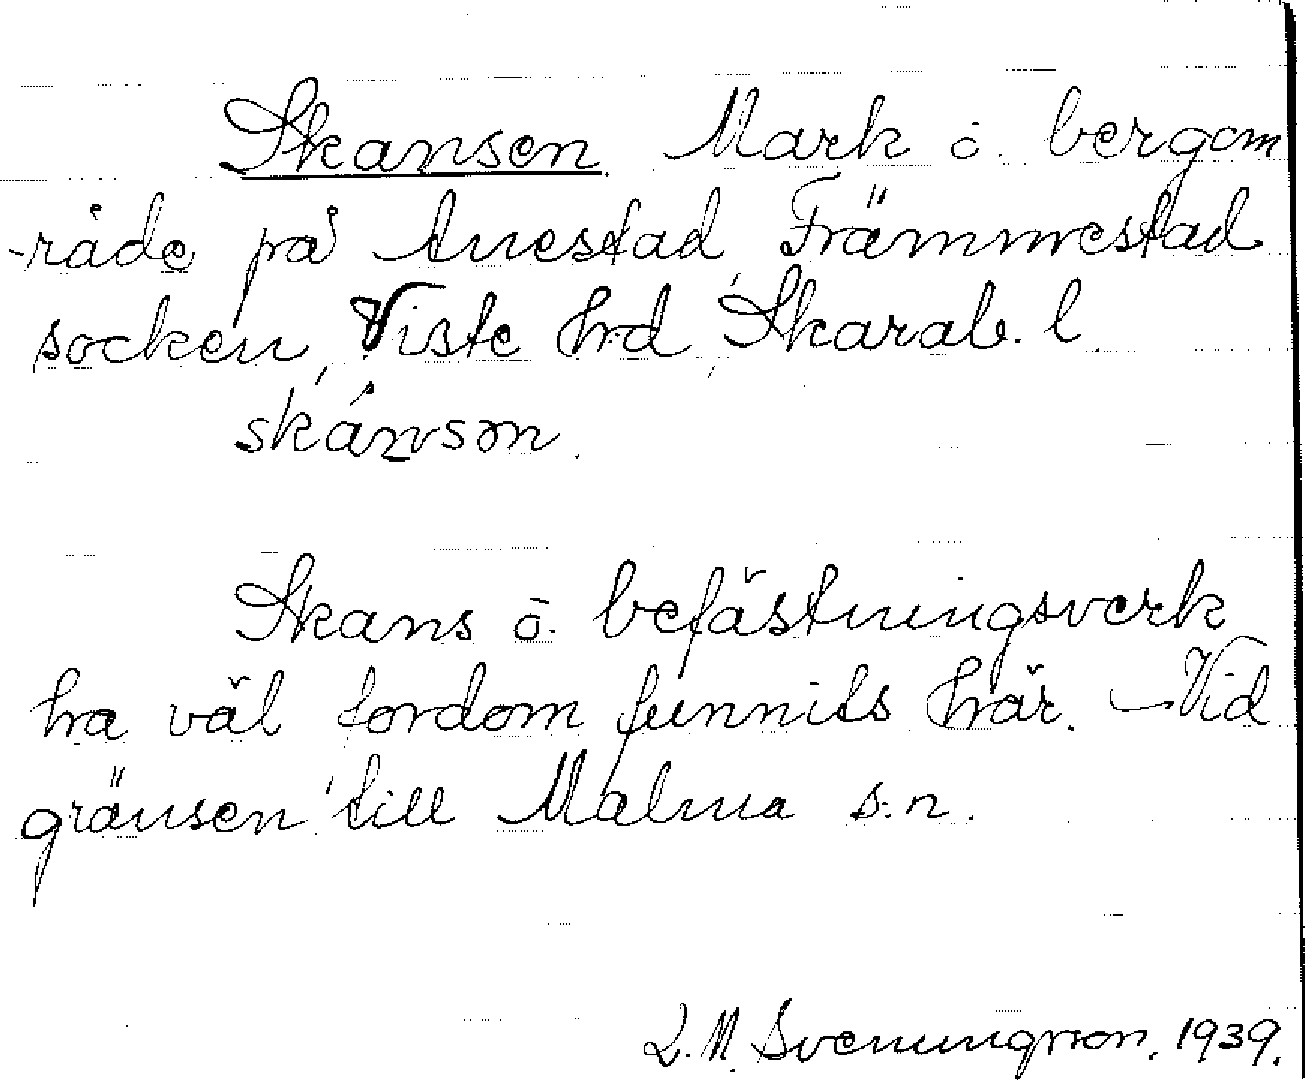 Skansen. Mark o. bergom
-råde på Anestad, Främmestad
socken, Viste hrd, Skarab. l.
skánsən.
Skans o. befästningsverk
ha väl fordom funnits här. – Vid
gränsen till Malma s:n.
L. M. Svenungsson. 1939.